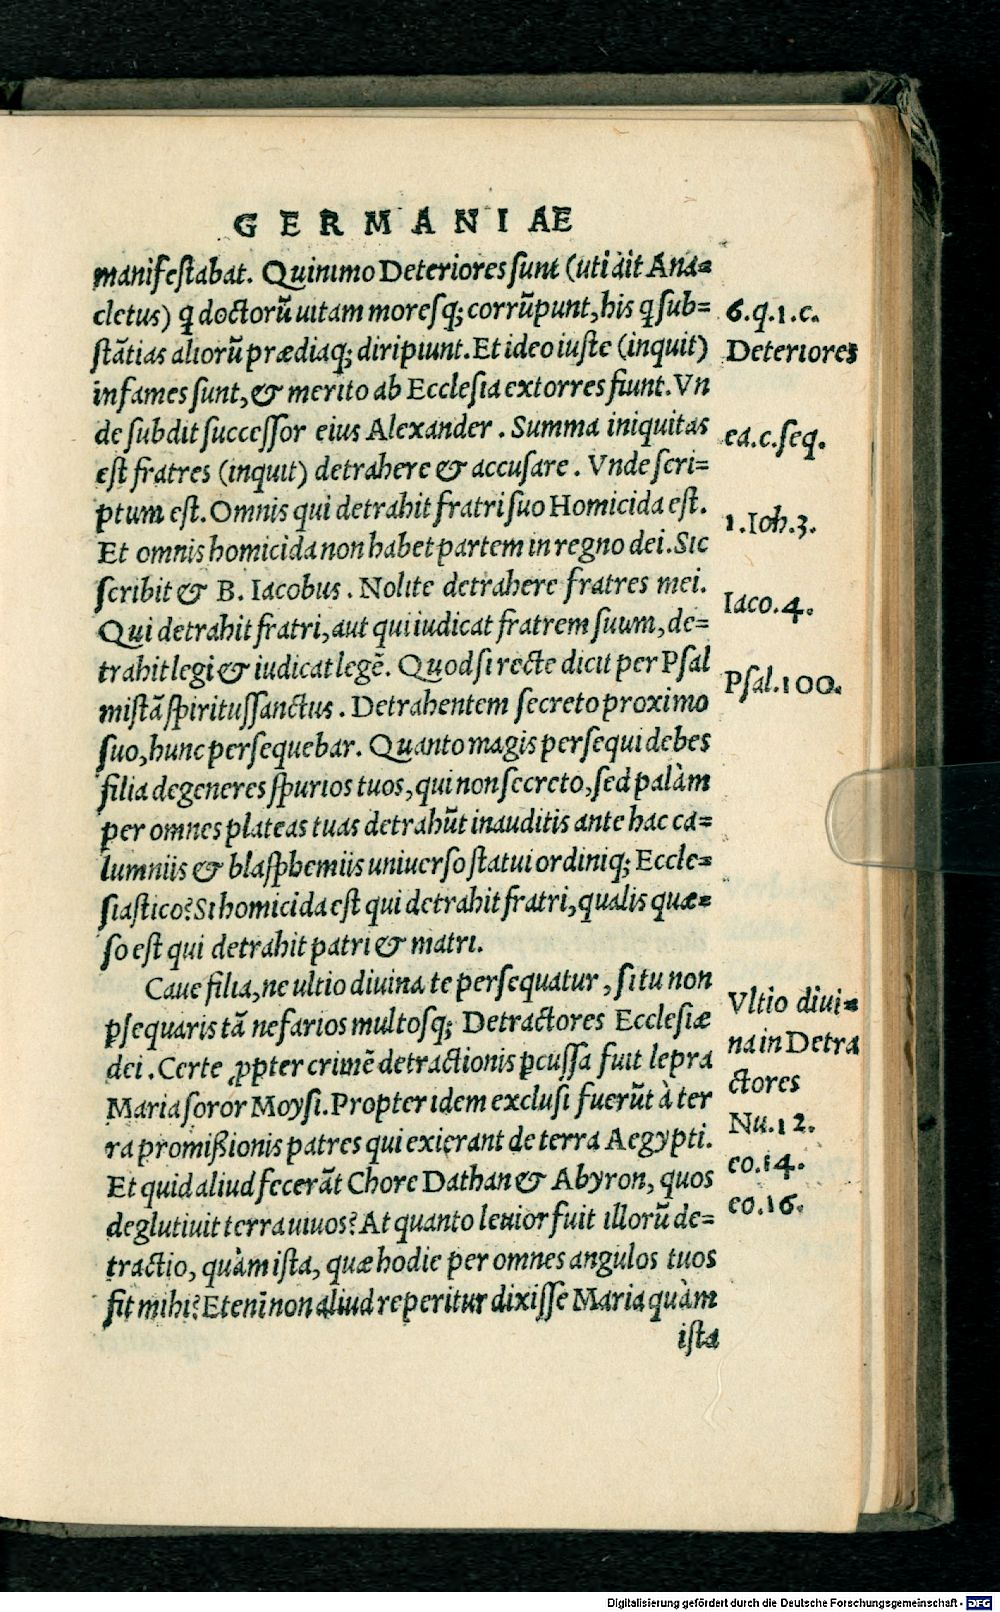 GERMANIAE
manifestabat. Quinimo Deteriores sunt (uti ait Ana=
cletus) q̃ doctorũ uitam moresq; corrũpunt, his q̃ sub=
stãtias aliorũ prædiaq; diripiunt. Et ideo iuste (inquit)
infames sunt, & merito ab Ecclesia extorres fiunt. Vn
de subdit successor eius Alexander. Summa iniquitas
est fratres (inquit) detrahere & accusare. Vnde scri=
ptum est. Omnis qui detrahit fratri suo Homicida est.
Et omnis homicida non habet partem in regno dei. Sic
scribit & B. Iacobus. Nolite detrahere fratres mei.
Qui detrahit fratri, aut qui iudicat fratrem suum, de=
trahit legi & iudicat legẽ. Quod si recte dicit per Psal
mistã spiritussanctus. Detrahentem secreto proximo
suo, hunc persequebar. Quanto magis persequi debes
filia degeneres spurios tuos, qui non secreto, sed palàm
per omnes plateas tuas detrahũt inauditis ante hac ca=
lumniis & blasphemiis uniuerso statui ordiniq; Eccle=
siastico? Si homicida est qui detrahit fratri, qualis quæ=
so est qui detrahit patri & matri.
Caue filia, ne ultio diuina te persequatur, si tu non
ꝑsequaris tã nefarios multosq; Detractores Ecclesiæ
dei. Certe ꝓpter crimẽ detractionis ꝑcussa fuit lepra
Maria soror Moysi. Propter idem exclusi fuerũt à ter
ra promißionis patres qui exierant de terra Aegypti.
Et quid aliud fecerãt Chore Dathan & Abyron, quos
deglutiuit terra uiuos? At quanto leuior fuit illorũ de=
tractio, quàm ista, quæ hodie per omnes angulos tuos
fit mihi? Etenĩ non aliud reperitur dixisse Maria quàm
ista
6.q.1.c.
Deteriores
ea.c.seq.
1.Ioh.3.
Iaco.4.
Psal.100.
Vltio diui=
na in Detra
ctores
Nu.12.
eo.14.
eo.16.
Digitalisierung gefördert durch die Deutsche Forschungsgemeinschaft - DFG